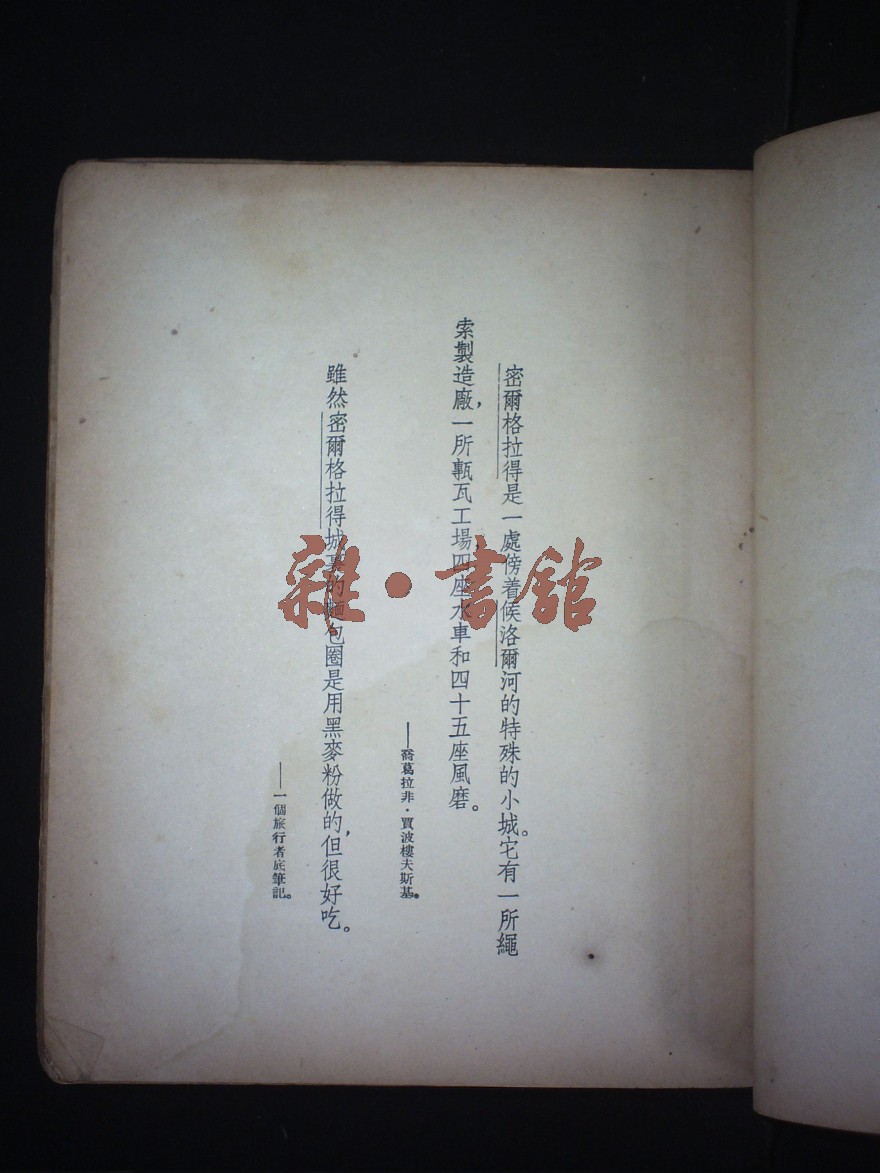 密爾格拉得是一處傍着候洛爾河的特殊的小城。它有一所繩
索製造廠，一所甎瓦工場四座水車和四十五座風磨。
——喬葛拉非·買波樓夫斯基。
雖然密爾格拉得城裏的麵包圈是用黑麥粉做的，但很好吃。
——一個旅行者底筆記。
雜·書館